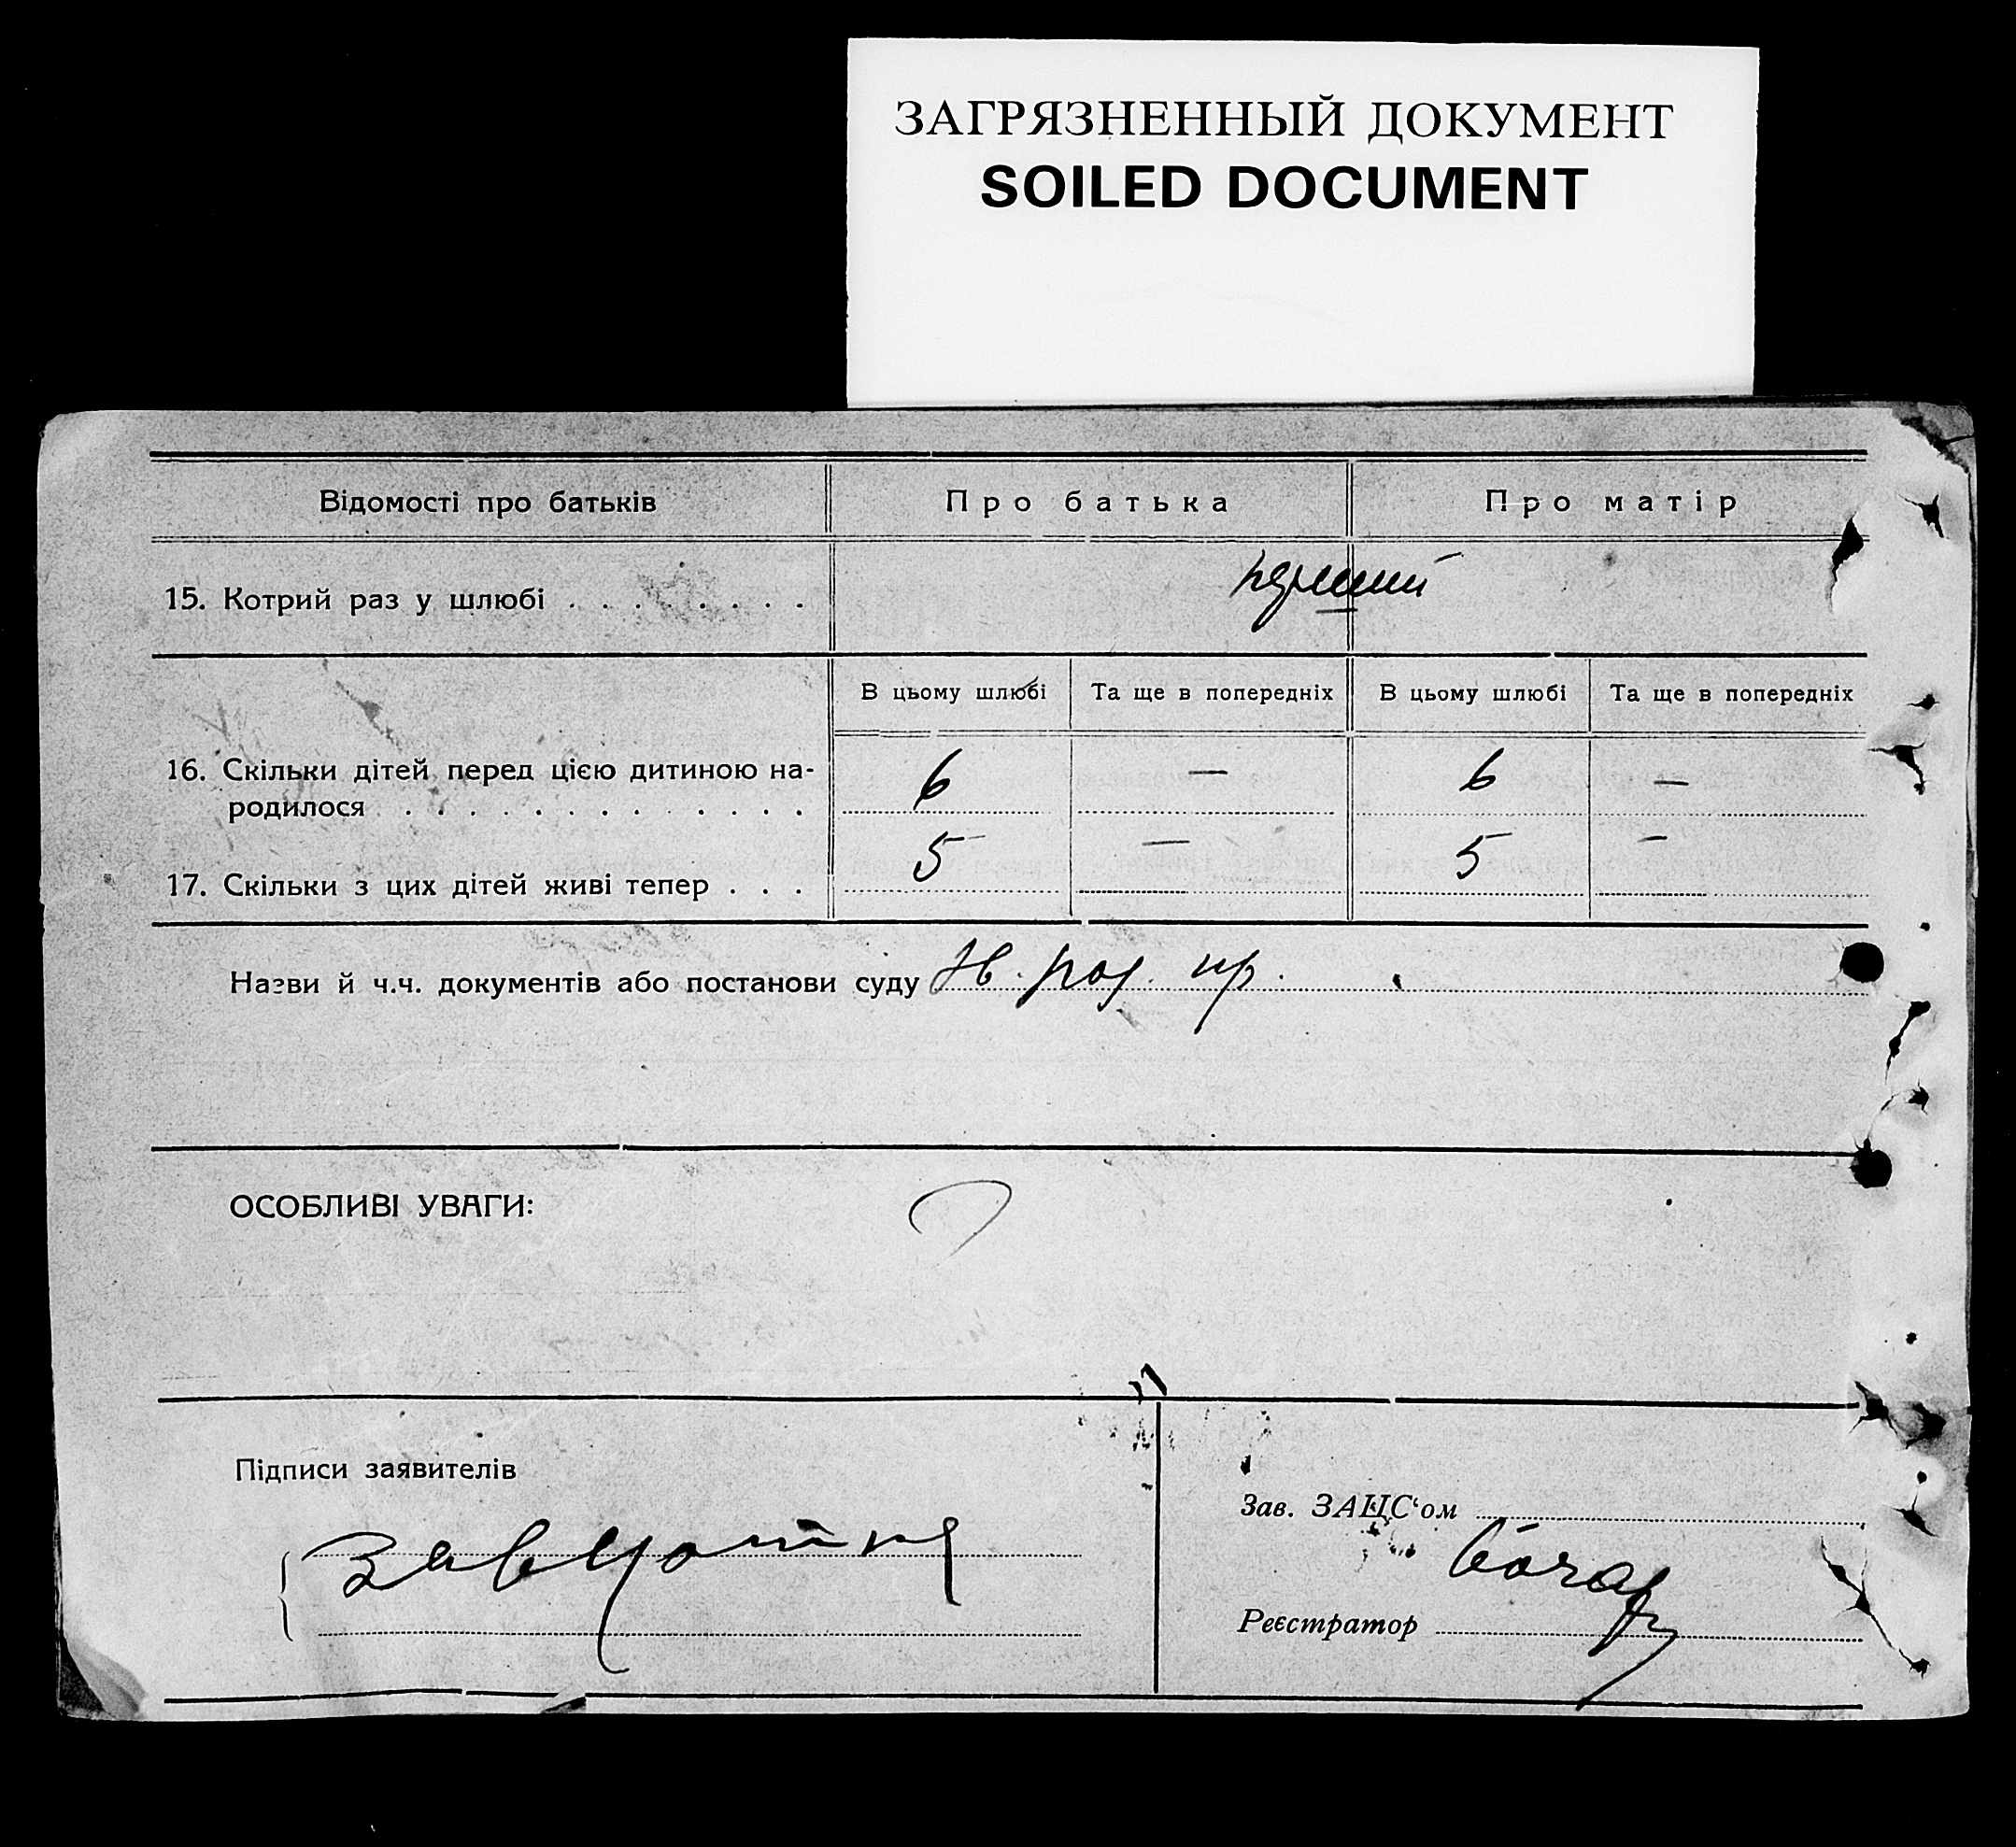 ЗАГРЯЗНЕННЫЙ ДОКУМЕНТ
SOILED DOCUMENT
Відомості про батьків Про батька Про матір
15. Котрий раз у шлюбі . . . . . . . .
В цьому шлюбі Та ще в попередніх В цьому шлюбі Та ще в попередніх
16. Скільки дітей перед цією дитиною на-
родилося . . . . . . . . . . . . . 6 — 6 —
17. Скільки з цих дітей живі тепер . . . 5 — 5 —
Назви й ч.ч. документів або постанови суду
ОСОБЛИВІ УВАГИ:
Підписи заявителів
Зав. ЗАЦС‘ом
Реєстратор